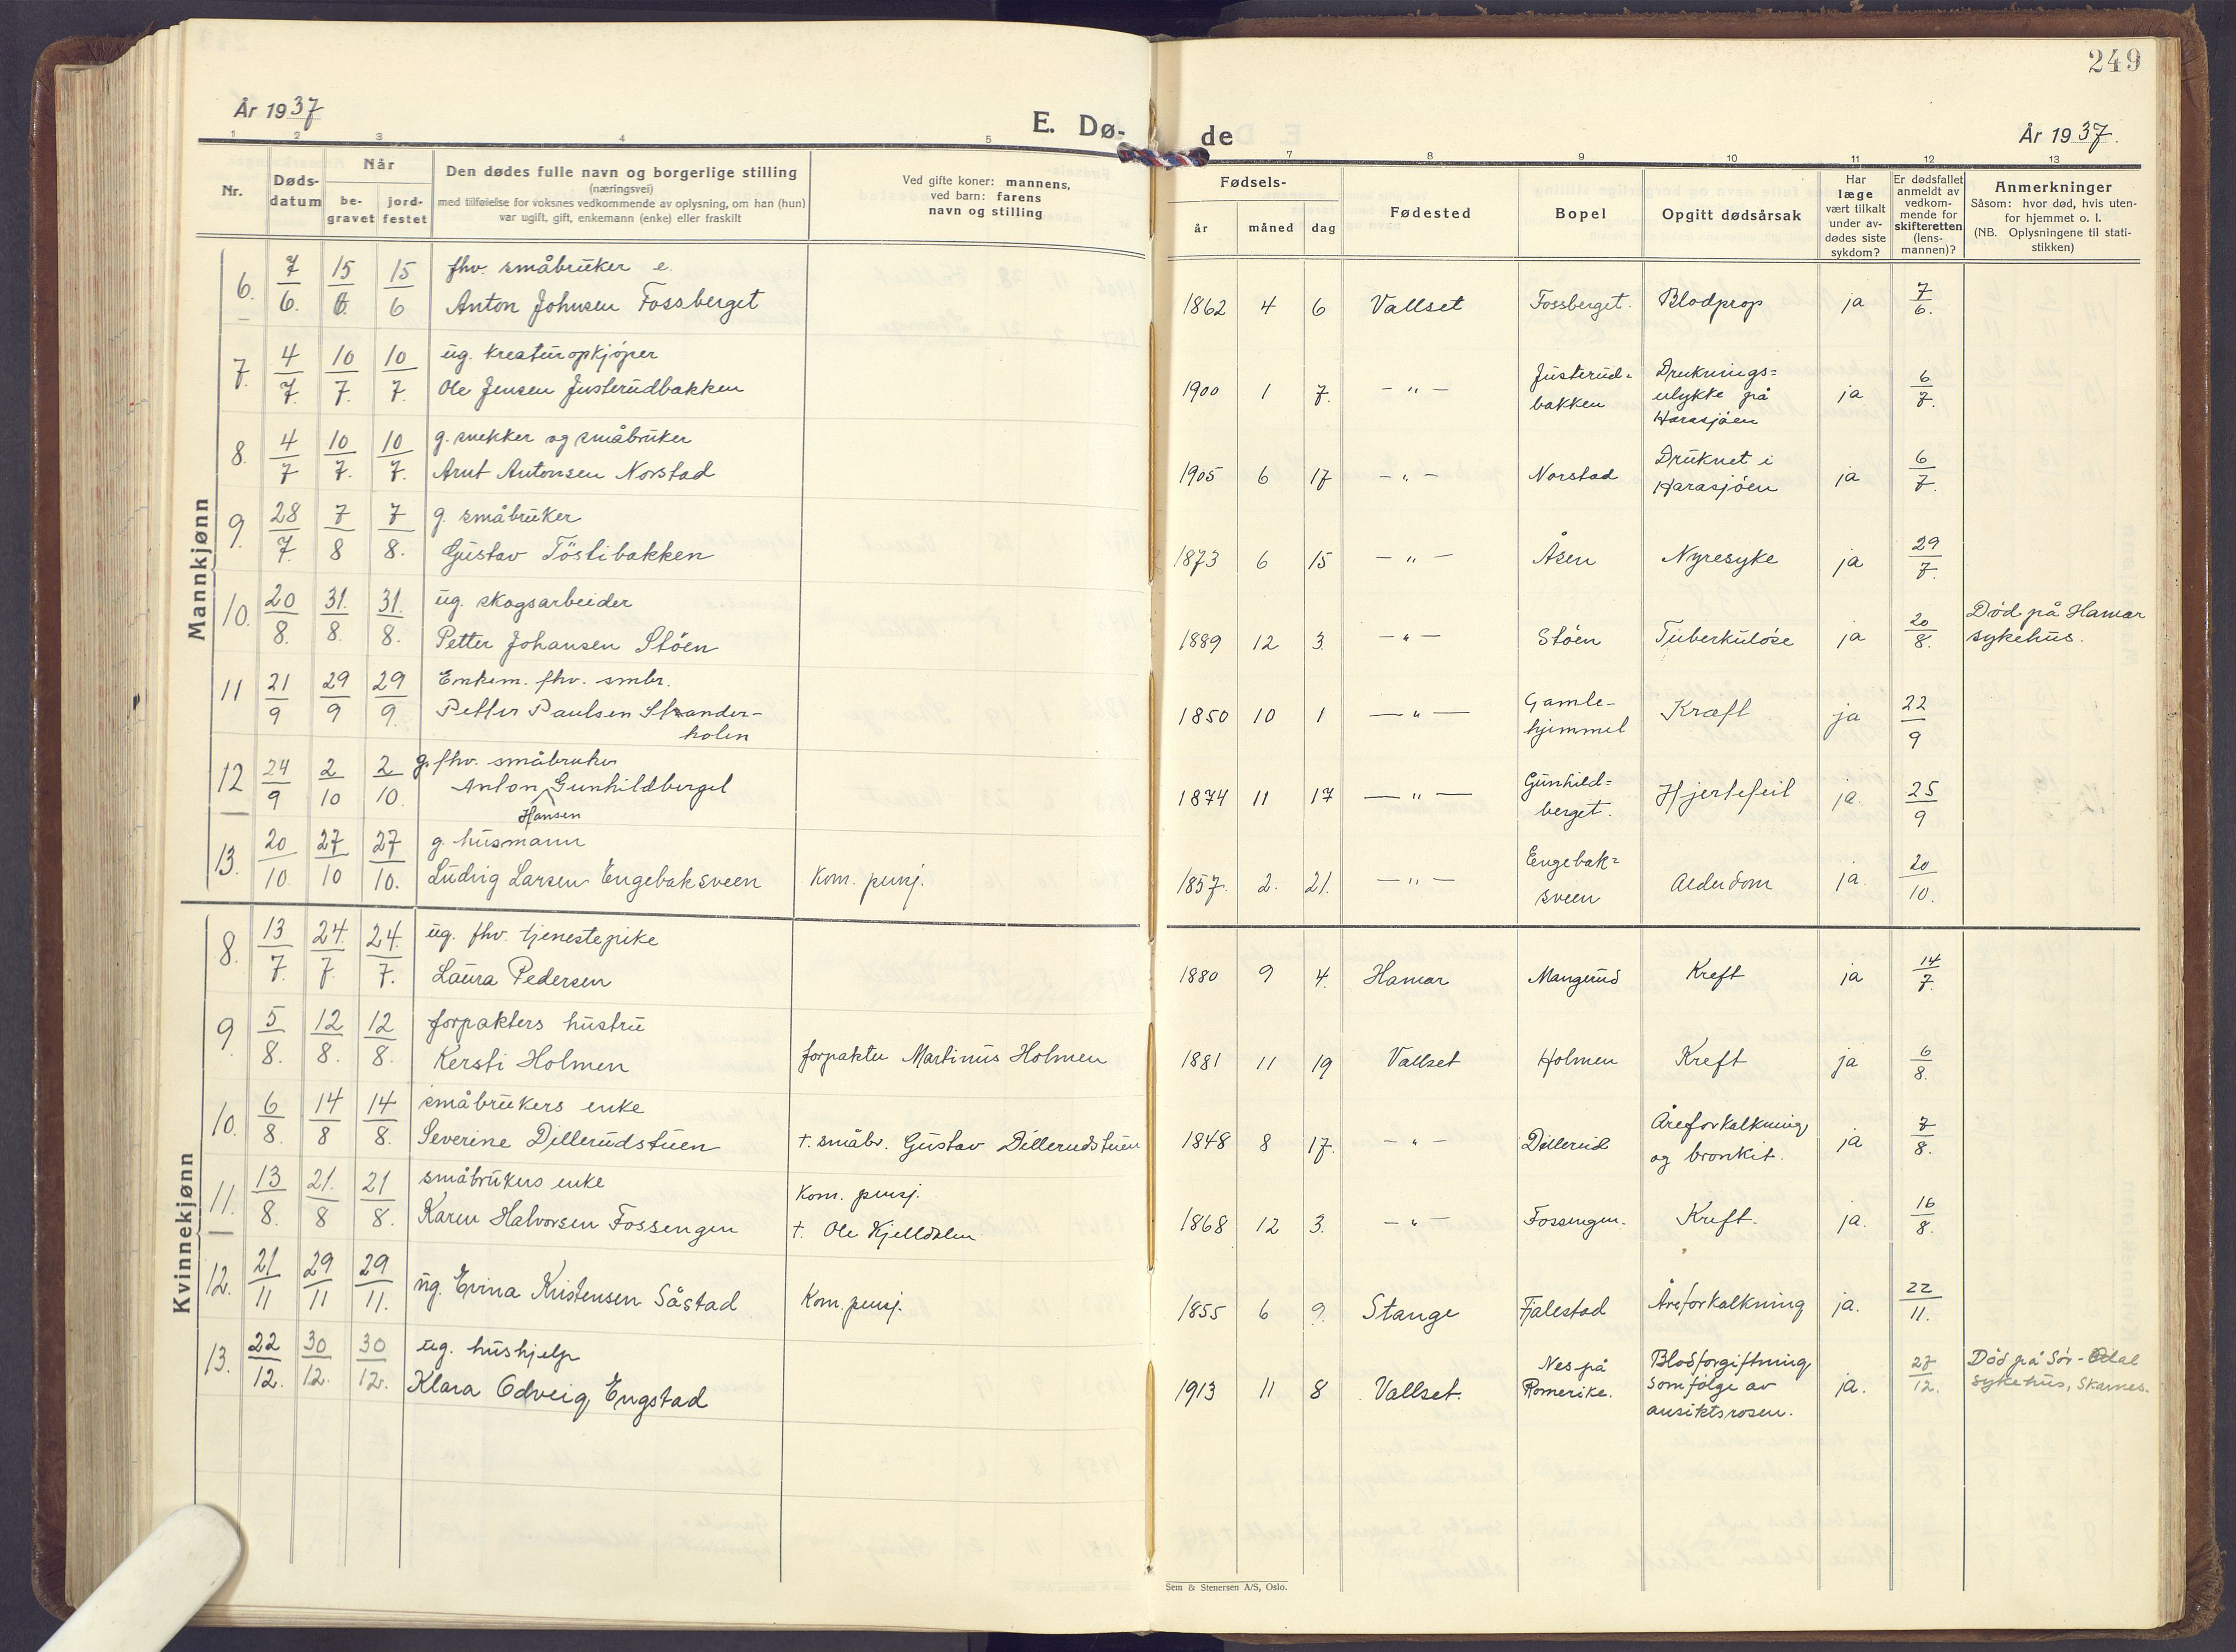 249
År 1937
E. Dø-
de
År 1937.
1 2 3 4 5 7 8 9 10 11 12 13
Nr.
Døds-
datum
Når
be-
gravet
jord-
festet
Den dødes fulle navn og borgerlige stilling
(næringsvei)
med tilføielse for voksnes vedkommende av oplysning, om han (hun)
var ugift, gift, enkemann (enke) eller fraskilt
Ved gifte koner: mannens,
ved barn: farens
navn og stilling
Fødsels-
år måned dag
Fødested
Bopel
Opgitt dødsårsak
Har
læge
vært tilkalt
under av-
dødes siste
sykdom?
Er dødsfallet
anmeldt av
vedkom-
mende for
skifteretten
(lens-
mannen)?
Anmerkninger
Såsom: hvor død, hvis uten-
for hjemmet o. l.
(NB. Oplysningene til stati-
stikken)
Mannkjønn
6. 7/6. 15/6. 15/6 fhv. småbruker e.
Anton Johnsen Fossberget
1862 4 6 Vallset Fossberget. Blodprop ja 7/6.
7. 4/7. 10/7. 10/7. ug. kreaturopkjøper
Ole Jensen Justerudbakken
1900 1 7. – " – Justerud=
bakken
Druknings=
ulykke på
Harasjøen
ja 6/7.
8. 4/7 10/7. 10/7. g. snekker og småbruker
Arnt Antonsen Norstad
1905 6 17 – " – Norstad Druknet i
Harasjöen
ja 6/7.
9. 28/7. 7/8 7/8. g. småbruker
Gustav Töstibakken
1873 6 15 – " – Åsen Nyresyke ja 29/7.
10. 20/8. 31./8. 31./8. ug. skogsarbeider
Petter Johansen Stöen
1889 12 3. – " – Stöen Tuberkulöse ja 20/8. Död på Hamar
sykehus.
11 21/9 29/9 29/9. Enkem. fhv. smbr.
Petter Paulsen Strander-
holen
1850 10 1 – " – Gamle-
hjemmet
Kræft ja 22/9
12 24/9 2/10 2/10. g. fhv. småbruker
Anton Gunhildberget
Hansen
1874 11 17 – " – Gunhild=
berget.
Hjertefeil ja. 25/9
13. 20/10 27/10 27/10. g. husmann
Ludvig Larsen Engebaksveen Kom. pensj.
1857. 2. 21. – " – Engebak=
sveen
Alderdom ja. 20/10.
Kvinnekjønn
8. 13/7. 24./7. 24./7. ug. fhv. tjenestepike
Laura Pedersen
1880 9 4. Hamar Mangerud Kreft ja 14/7.
9. 5/8. 12/8. 12/8. forpakters hustru
Kersti Holmen forpakter Martinus Holmen
1881 11 19 Vallset Holmen Kreft ja 6/8.
10. 6/8. 14/8 14/8. småbrukers enke
Severine Dillerudstuen †. småbr. Gustav Dillerudstuen
1848 8 17. – " – Dillerud Åreforkalkning
og bronkit.
ja 7/8.
11. 13/8. 21./8 21/8. småbrukers enke
Karen Halvorsen Fossengen
Kom. pensj.
†. Ole Kjelldalen
1868 12 3. – " – Fossengen. Kreft. ja. 16/8.
12. 21/11 29/11 29/11. ug. Evina Kristensen Såstad Kom. pensj.
1855 6 9. Stange Fjalestad Åreforkalkning ja. 22/11.
13. 22/12. 30/12. 30/12. ug. hushjelp
Klara Odveig Engstad
1913 11 8 Vallset. Nes på
Romerike.
Blodforgiftning
som følge av
ansiktsrosen.
ja. 27/12. Död på Sör-Odal
sykehus, Skarnes.
Sem & Stenersen A/S, Oslo.